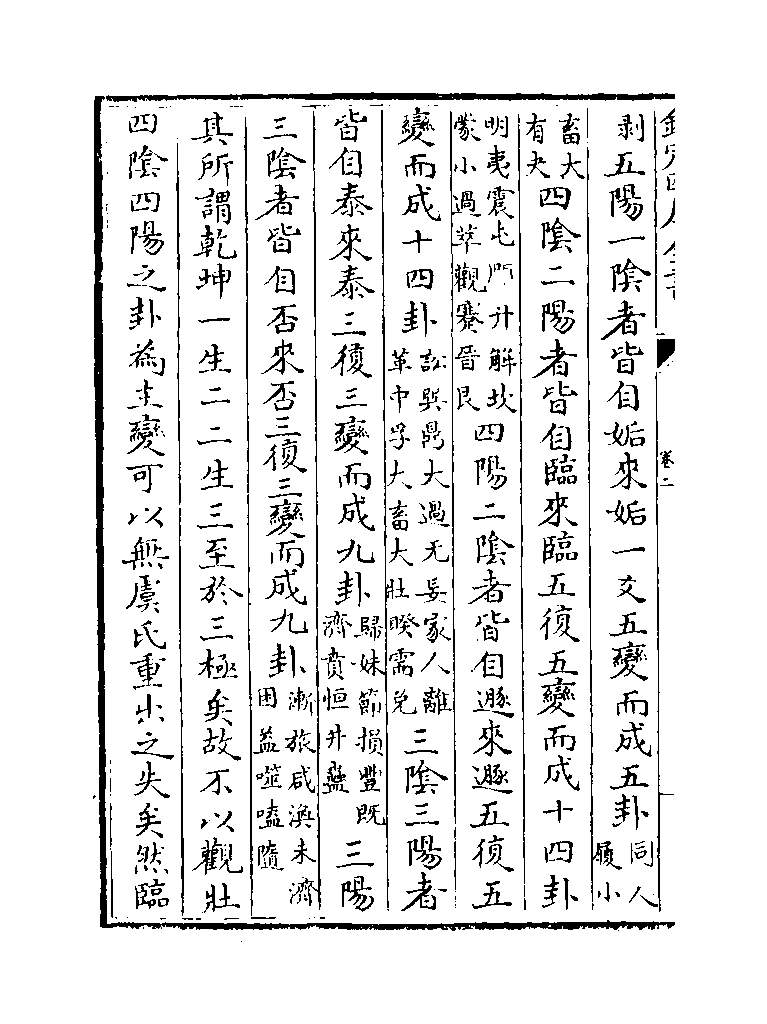 欽定四庫全書
卷二
剥五陽一陰者皆自姤來姤一爻五變而成五卦同人履小
畜大有夬四陰二陽者皆自臨來臨五復五變而成十四卦
明夷震屯升解坎蒙小過萃觀蹇晉艮四陽二陰者皆自遯來遯五復五
變而成十四卦訟巽鼎大過无妄家人離革中孚大畜大壯睽需兌三陰三陽者
皆自泰來泰三復三變而成九卦歸妹節損豐既濟賁恒井蠱三陽
三陰者皆自否來否三復三變而成九卦漸旅咸渙未濟困益噬嗑隨
其所謂乾坤一生二二生三至於三極矣故不以觀壯
四陰四陽之卦為主變可以無虞氏重出之失矣然臨